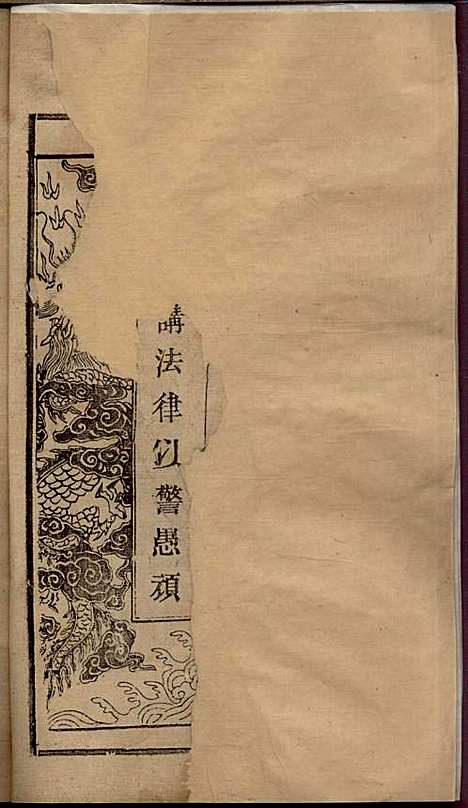 講法律以警愚頑